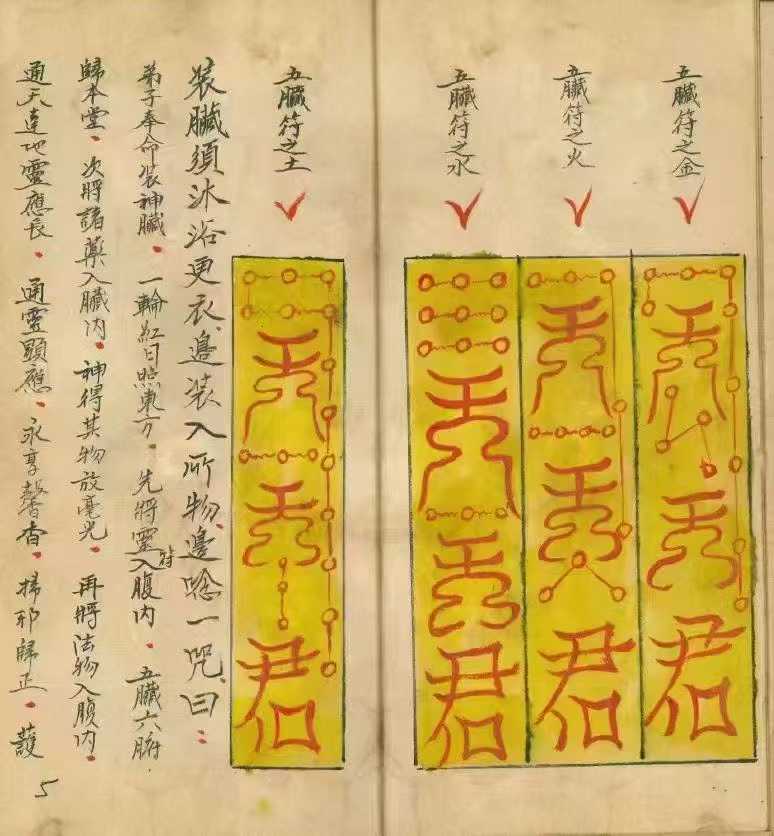 五臟符之金
五臟符之火
五臟符之水
五臟符之土
君
君
君
君
裝臟須沐浴更衣、邊裝入所物、邊唸一咒、曰：
弟子奉命裝神臟。一輪紅日照東方。先將靈符入腹內。五臟六腑.
歸本堂。次將諸藥入臟內。神得其物放毫光。再將法物入腹內。
通天達地靈應長。通靈顯應、永享馨香。掃邪歸正。護
5